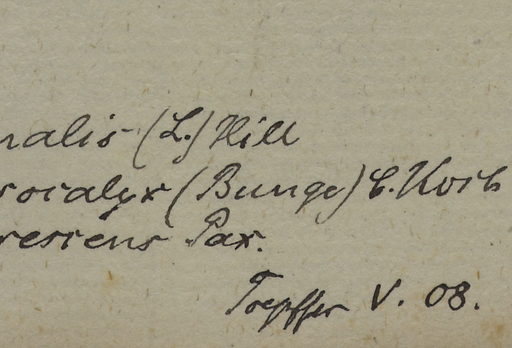 nalis (L.) Hill
rocalyx (Bunge) C. Koch
rescens Pax.
Toepffer V. 08.